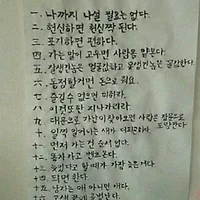 一. 나까지 나설 필요는 없다.
二. 헌신하면 헌신짝 된다.
三. 포기하면 편하다.
四. 가는 말이 고우면 사람을 얕본다.
五. 잘생긴 놈은 얼굴값하고 못생긴 놈은 꼴값한다.
六. 동정할거면 돈으로 줘요.
七. 즐길 수 없으면 피하라.
八. 이것 또한 지나가리라.
九. 대문으로 가난이 찾아오면 사랑은 창문으로 도망간다.
十. 일찍 일어나는 새가 더 피곤하다.
十一. 먼저 가는 건 순서 없다.
十二. 똥차 가고 벤츠 온다.
十三. 늦었다고 할 때가 가장 늦은 거다.
十四. 되면 한다.
十五. 남자는 애 아니면 개다.
十六. 고생 끝에 골병난다.